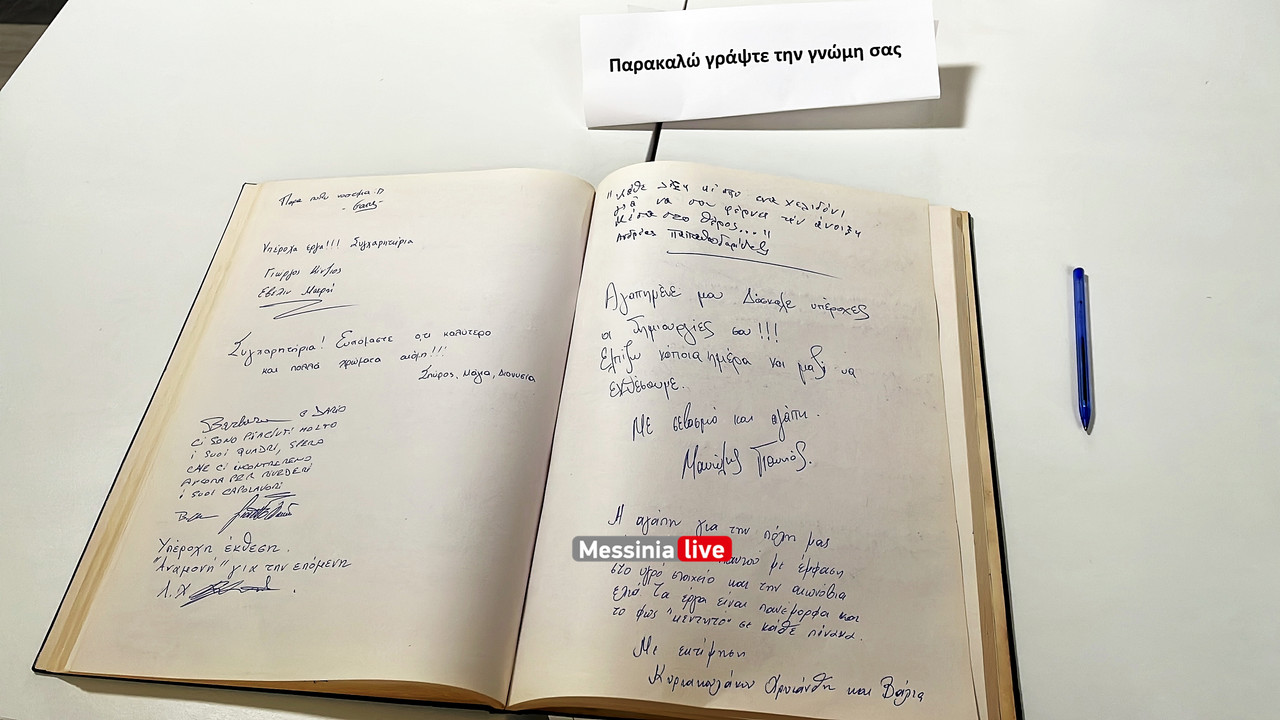 Παρακαλώ γράψτε την γνώμη σας
Υπέροχα έργα!!! Συγχαρητήρια
Γιώργος
Εβελιν Μακρή
Συγχαρητήρια! Ευχόμαστε ότι καλύτερο
και πολλά χρώματα ακόμη!!!
Σπύρος, Μάγια, Διονυσία
Barbara e DARIO
Ci SONO PIACIUTI MOLTO
i SUOI QUADRI, SPERO
CHE CI INCONTREREMO
ANCORA PER RIVEDERE
i SUOI CAPOLAVORI
Υπέροχη έκθεση.
"Αναμονή" για την επόμενη
Λ.Χ
για να σου φέρνει την άνοιξη
μέσα στο θέρος..."
Ανδρέας
Αγαπημένε μου Δάσκαλε υπέροχες
οι δημιουργίες σου!!!
Ελπίζω κάποια ημέρα και μαζί να
εκθέσουμε.
Με σεβασμό και αγάπη.
Μανώλης
Η αγάπη για την πόλη μας
παντού με έμφαση
στο υγρό στοιχείο και την αιωνόβια
ελιά. Τα έργα είναι πανέμορφα και
το φως "κεντητό" σε κάθε πίνακα.
Με εκτίμηση
και Βάλια
Messinia live